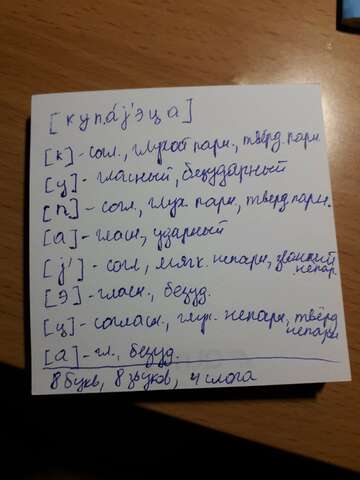 [купа́j'эца]
[к] - согл., глухой парн., твёрд. парн
[у] - гласный, безударный
[п] - согл., глух. парн, тверд парн.
[а] - гласн, ударный
[j'] - согл, мягк. непарн, звонкий непар.
[э] - гласн., безуд.
[ц] - согласн., глух. непарн, твёрд непарн
[а] - гл., безуд.
8 букв, 8 звуков, 4 слога